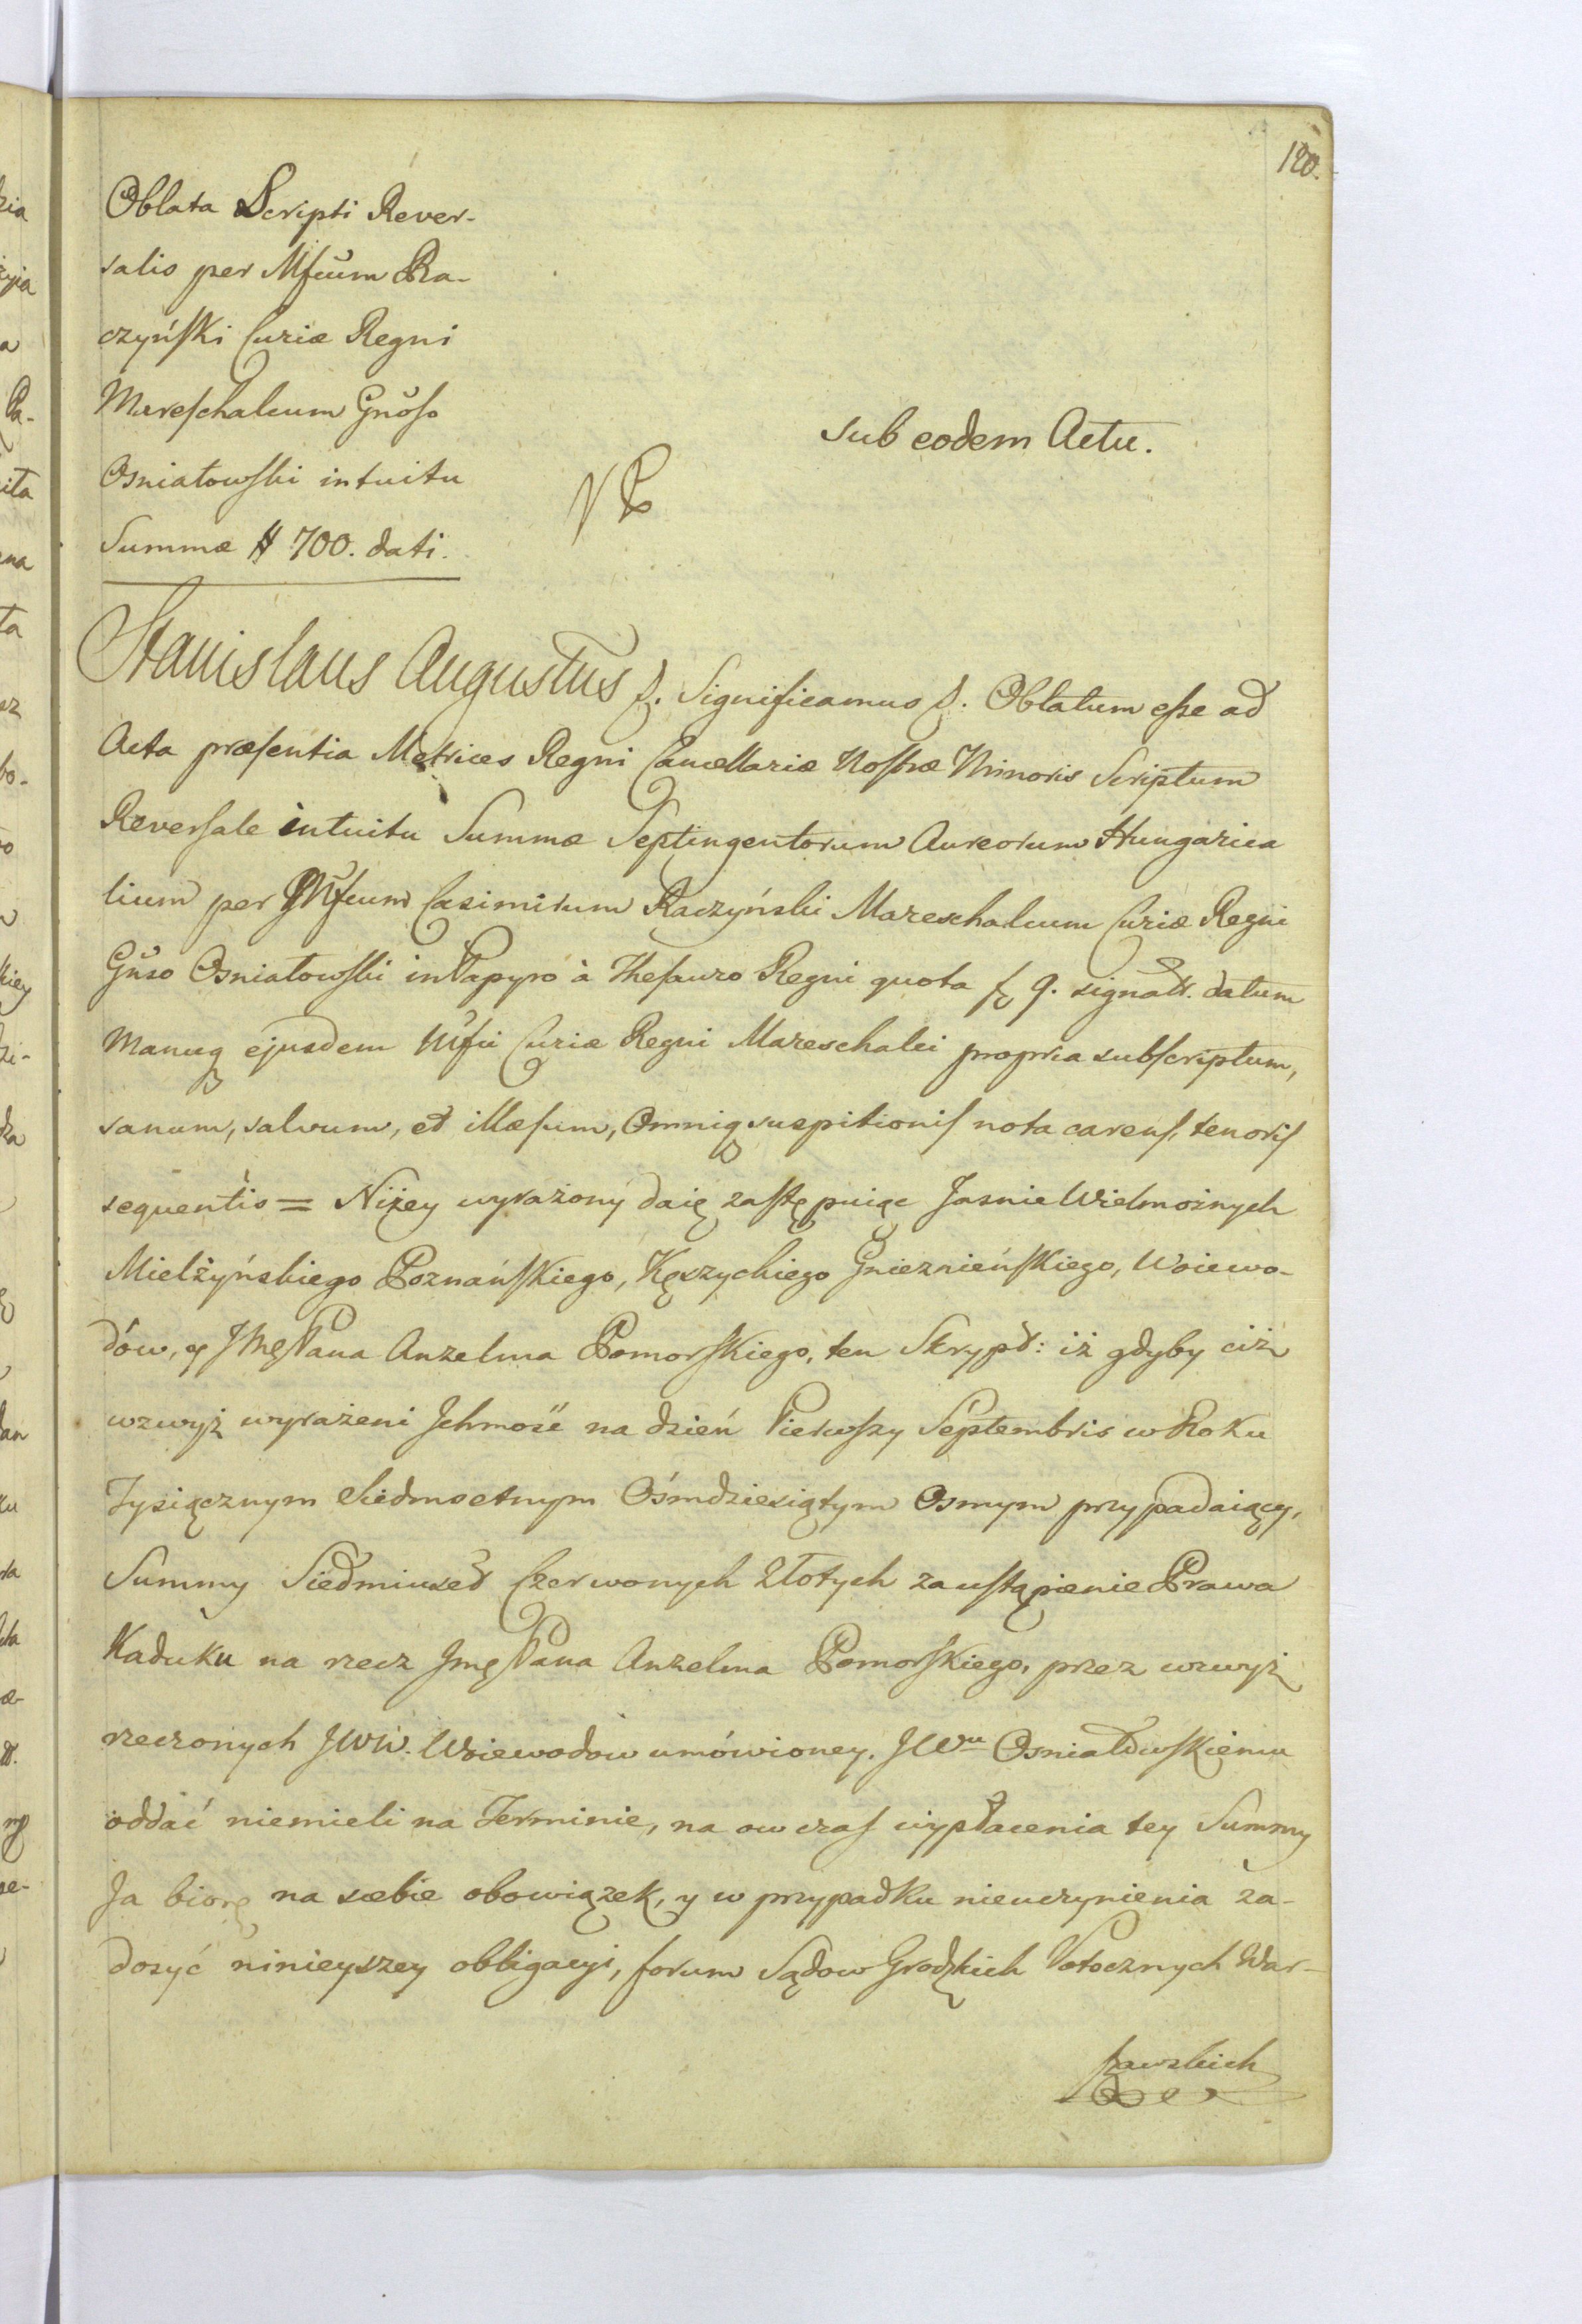 120.
Oblata Scripti Rever-
salis per Mfcum Ra-
czyńſki Curiæ Regni
Mareſchalcum Gnoſo
Osniatowſki intuitu
Summæ # 700. dati.
sub eodem Actu.
Stanislaus Augustus &. Significamus &. Oblatum eſse ad
Acta præſentia Metrices Regni Cancellariæ Noſtræ Minoris Scriptum
Reverſale intuitu Summæ Septingentorum Aureorum Hungarica
lium per Mfcum Casimirum Raczyński Mareschalcum Curiæ Regni
Gnoso Osniatowſki in Papyro à Theſauro Regni quota f 9. signatt. datum
Manuq ejusdem Mfci Curiæ Regni Mareschalci propria subſcriptum,
sanum, salvum, et illæſum, Omniq suspitioniſ nota carenſ, tenoriſ
sequentis = Niżey wyrażony daię zaſtępuiąc Jasnie Wielmożnych
Mielżyńskiego Poznańſkiego, Kęszychiego Gnieznieńſkiego, Woiewo-
dów, y JMę Pana Anzelma Pomorſkiego, ten Skrypt: iż gdyby ciż
wzwyż wyrażeni Ichmość na dzień Pierwſzy Septembris w Roku
Tysiącznym Siedmsetnym Ośmdziesiątym Osmym przypadaiący,
Summy Siedmiuset Czerwonych Złotych za uſtąpienie Prawa
Kaduku na rzecz Jmę Pana Anzelma Pomorſkiego, przez wzwyż
rzeczonych JWW. Woiewodow umówioney. JWu Osniatowſkiemu
oddać niemieli na Terminie, na ow czaſ wypłacenia tey Summy
Ja biorę na siebie obowiązek, y w przypadku nieuczynienia za-
dosyć ninieyszey obligacyi, forum Sądow Grodzkich Potocznych War-
szawskich